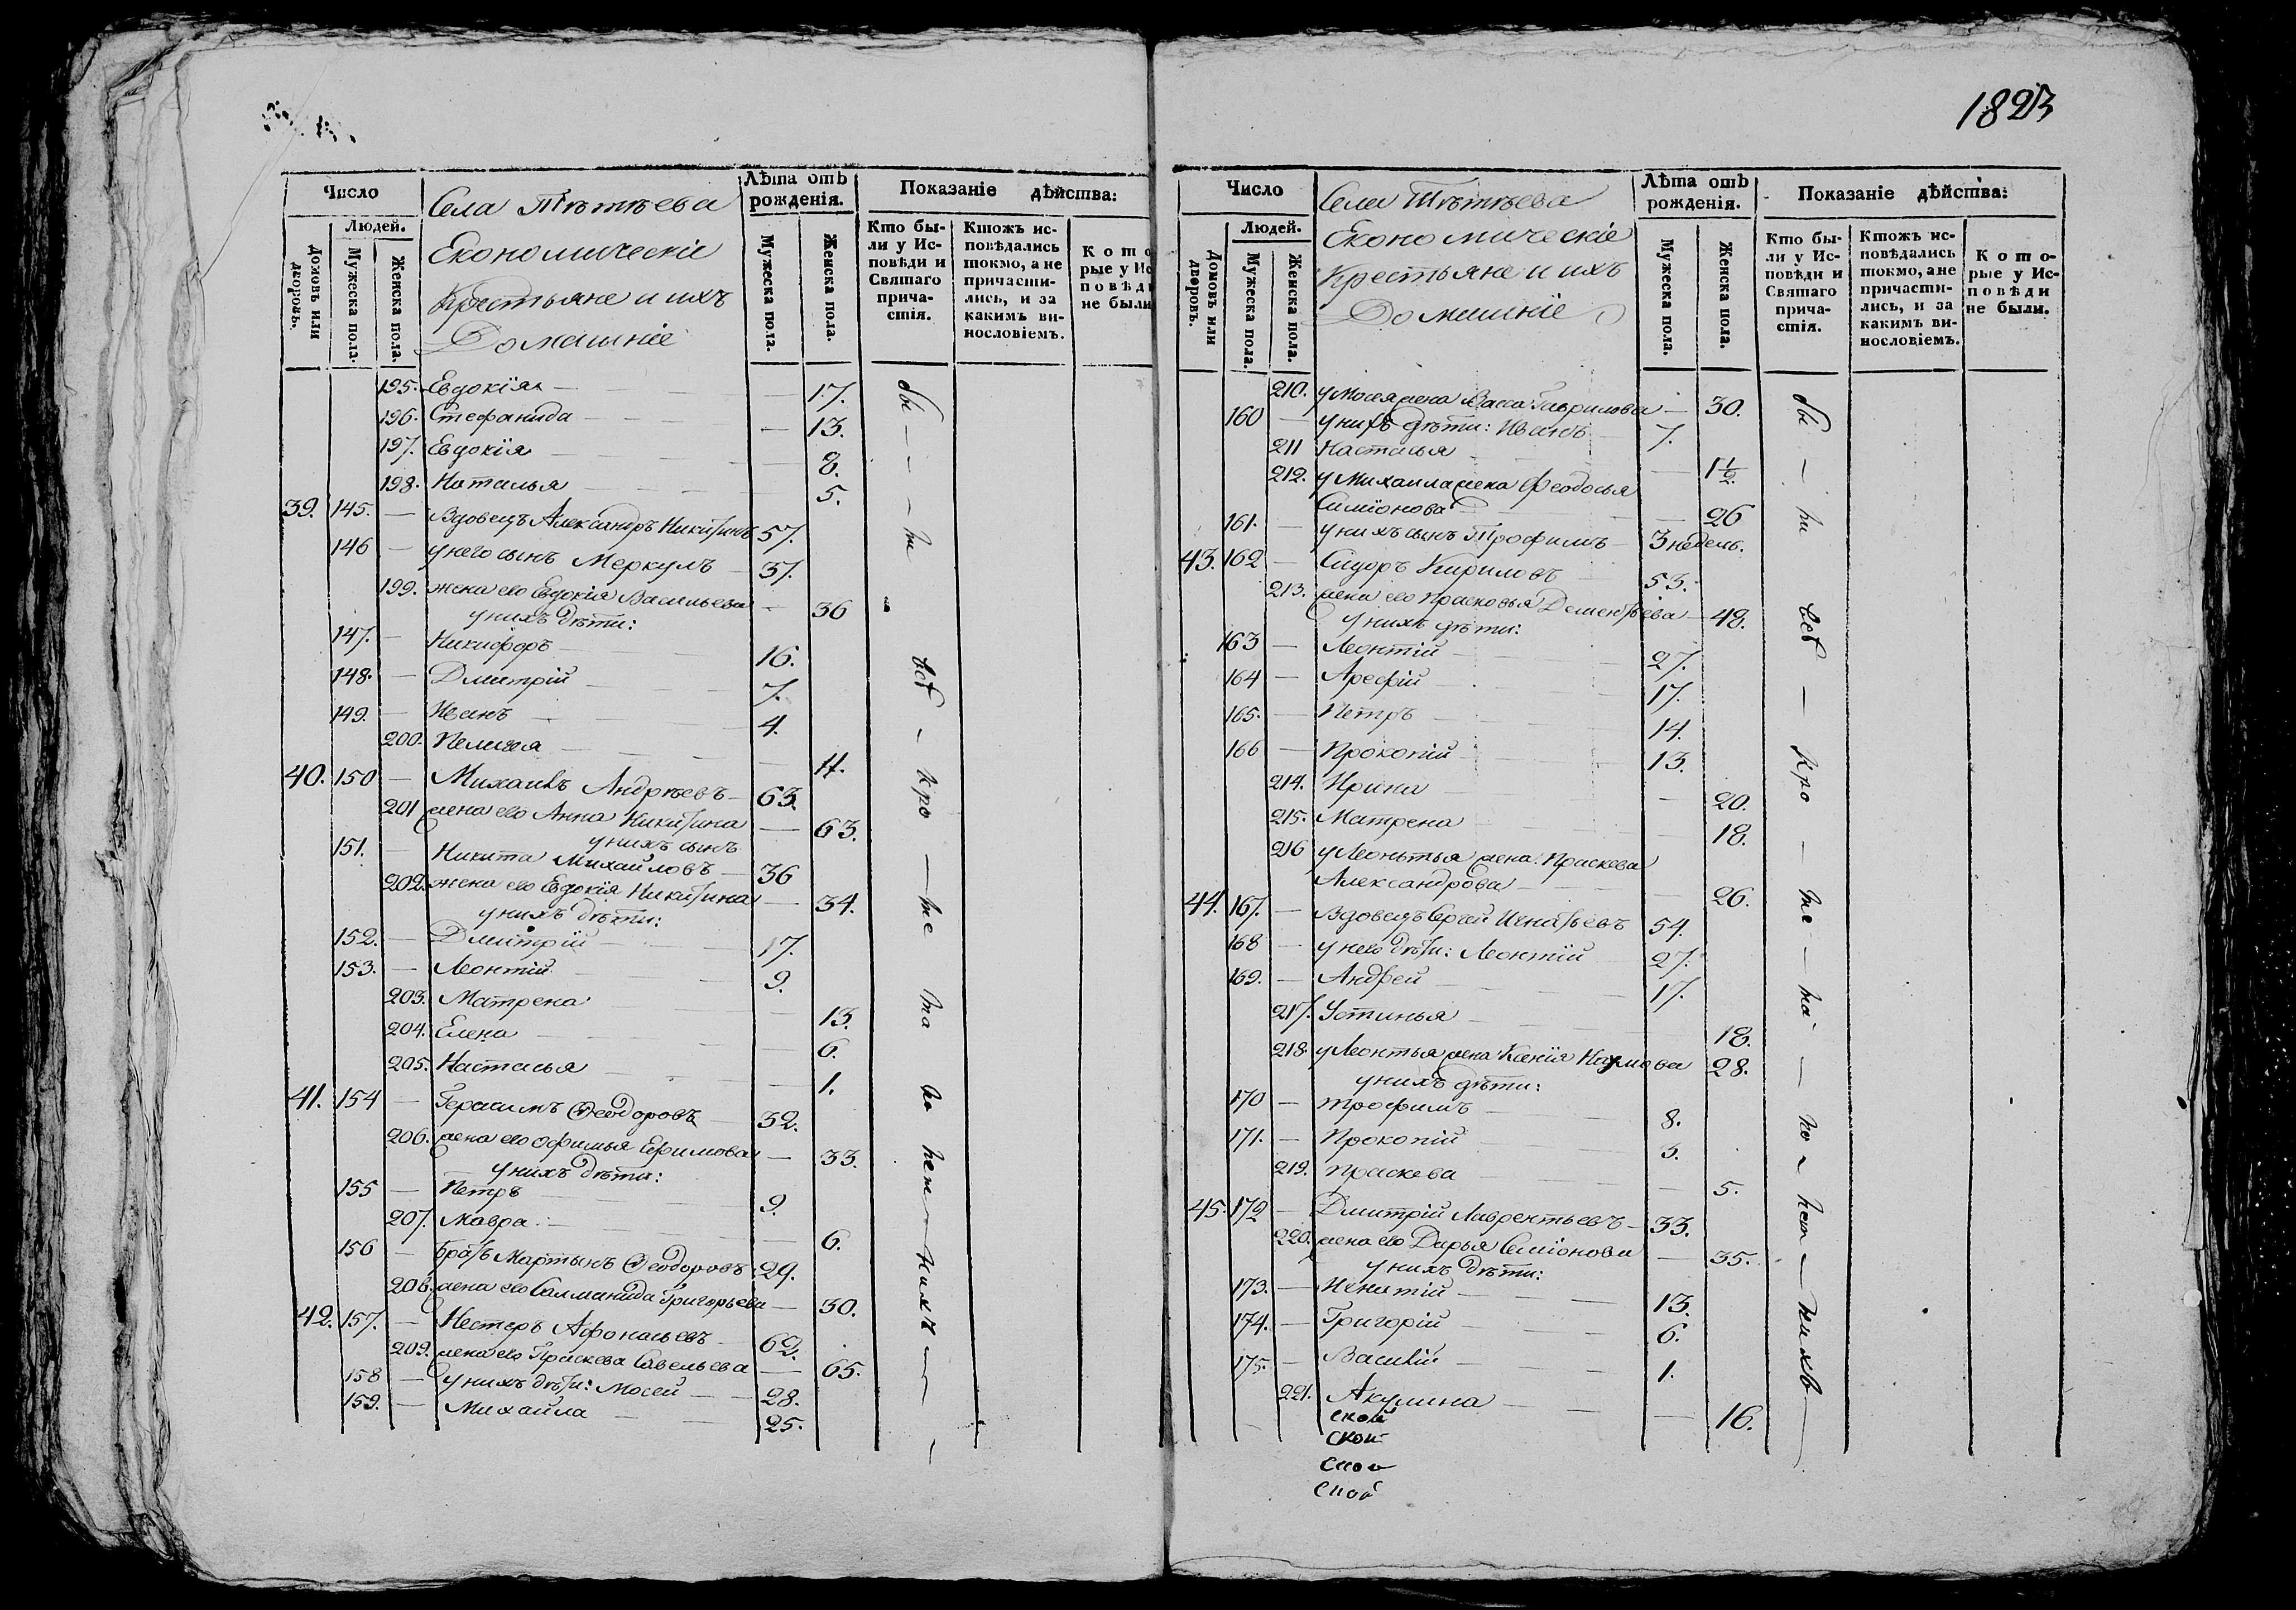 1823
Число
Людей.
Домовъ или дворовъ.
Мужеска пола.
Женска пола.
Села Тѣтѣева
Економическіе
Крестьяне и ихъ
Домашніе
Лѣта отъ рожденія.
Мужеска пола.
Женска пола.
Показаніе дѣйства:
Кто были у Исповѣди и Святаго причастія.
Ктожъ исповѣдались токмо, а не причастились, и за какимъ винословіемъ.
Которые у Исповѣди не были
195. Евдокія — 17.
196. Стефанида — 13.
197. Евдокія — 8.
198. Наталья — 5.
39. 145. — Вдовецъ Александръ Никитинъ 57.
146 — у него сынъ Меркулъ — 37.
199. жена ево Евдокія Васильева — 36
у нихъ дѣти:
147. — Никифоръ — 16.
148. — Дмитрій — 7.
149. — Иванъ — 4.
200. Пелагея — 11.
40. 150 — Михаилъ Андрѣевъ — 63.
201 жена ево Анна Никитина — 63.
у нихъ сынъ
151. — Никита Михайловъ — 36
202. жена ево Евдокія Никитина — 34.
у нихъ дѣти:
152. — Дмитрій — 17.
153. — Леонтій — 9.
203. Матрена — 13.
204. Елена — 6.
205. Настасья — 1.
41. 154 — Герасимъ Ѳеодоровъ — 32.
206. жена ево Офимья Ефимова — 33.
у нихъ дѣти:
155 — Петръ — 9.
207. Мавра — 6.
156 — братъ Мартынъ Ѳеодоровъ 29.
208. жена ево Саламанида Григорьева — 30.
42. 157. — Нестеръ Афонасьевъ — 62.
209. жена ево Праскева Савельева — 65.
158 — у нихъ дѣти: Мосей — 28.
159. — Михайла — 25.
Число
Людей.
Домовъ или дворовъ.
Мужеска пола.
Женска пола.
Села Тѣтѣева
Економическіе
Крестьяне и ихъ
Домашніе
Лѣта отъ рожденія.
Мужеска пола.
Женска пола.
Показаніе дѣйства:
Кто были у Исповѣди и Святаго причастія.
Ктожъ исповѣдались токмо, а не причастились, и за какимъ винословіемъ.
Которые у Исповѣди не были.
210. у Мосея жена Васса Гаврилова — 30.
160 — у нихъ дѣти: Иванъ — 7.
211 Настасья — 1½.
212. у Михаила жена Феодосья
Симіонова — 26
161. — у нихъ сынъ Трофимъ — 3 недель.
43. 162 — Сидоръ Кириловъ — 53.
213. жена ево Прасковья Дементьева — 48.
у нихъ дѣти:
163 — Леонтій — 27.
164 — Арефій — 17.
165. — Петръ — 14.
166 — Прокопій — 13.
214. Ирина — 20.
215. Матрена — 18.
216 у Леонтья жена: Праскева
Александрова — 26.
44. 167. — Вдовецъ Сергей Игнатьевъ 54.
168 — у нево дѣти: Леонтій 27.
169. — Андрей — 17.
217. Устинья — 18.
218 у Леонтья жена Ксенія Наумова 28.
у нихъ дѣти:
170 — Трофимъ — 8.
171. — Прокопій — 3.
219. Праскева — 5.
45. 172 — Дмитрій Лаврентьевъ — 33.
220. жена ево Дарья Семіонова — 35.
у нихъ дѣти:
173. — Игнатій — 13.
174. — Григорій — 6.
175. — Василій — 1.
221. Акулина — 16.
ской
ской